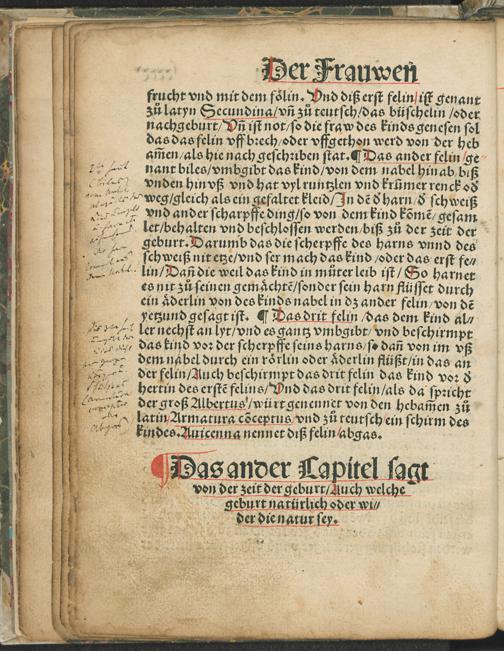 Der Frauwen
frucht vnd mit dem fölin. Vnd diß erst felin/ist genant
zů latyn Secundina/vñ zů teutsch/das büschelin/oder
nachgeburt/Vñ ist not/so die fraw des kinds genesen sol
das das felin vff brech/oder vffgethon werd von der heb
am̃en/als hie nach geschriben stat. ¶ Das ander felin/ge
nant biles/vmbgibt das kind/von dem nabel hin ab biß
vnden hin vß vnd hat vyl runtzlen vnd krüm̃er renck oď
weg/gleich als ein gefaltet kleid/In dē ď harn/ď schweiß
vnd ander scharpffe ding/so von dem kind kōmē/gesam
let/behalten vnd beschlossen werden/biß zů der zeit der
geburt. Darumb das die scherpffe des harns vnnd des
schweiß nit etze/vnd ser mach das kind/oder das erst fe-
lin/Dañ die weil das kind in můter leib ist/So harnet
es nit zů seinen gemächtē/sonder sein harn flüsset durch
ein äderlin von des kinds nabel in dz ander felin/von dē
yetzund gesagt ist. ¶ Das drit felin/das dem kind al-
ler nechst an lyt/vnd es gantz vmbgibt vnd beschirmpt
das kind vor der scherpffe seins harns/so dañ von im vß
dem nabel durch ein rörlin oder äderlin flüßt/in das an
der felin/Auch beschirmpt das drit felin das kind vor ď
hertin des erstē felins/Vnd das drit felin/als da spricht
der groß Albertus/würt genennet von den hebam̃en zů
latin Armatura cōceptus vnd zů teutsch ein schirm des
kindes. Auicenna nennet diß felin/abgas.
¶Das ander Capitel sagt
von der zeit der geburt/Auch welche
geburt natürlich oder wi-
der die natur sey.